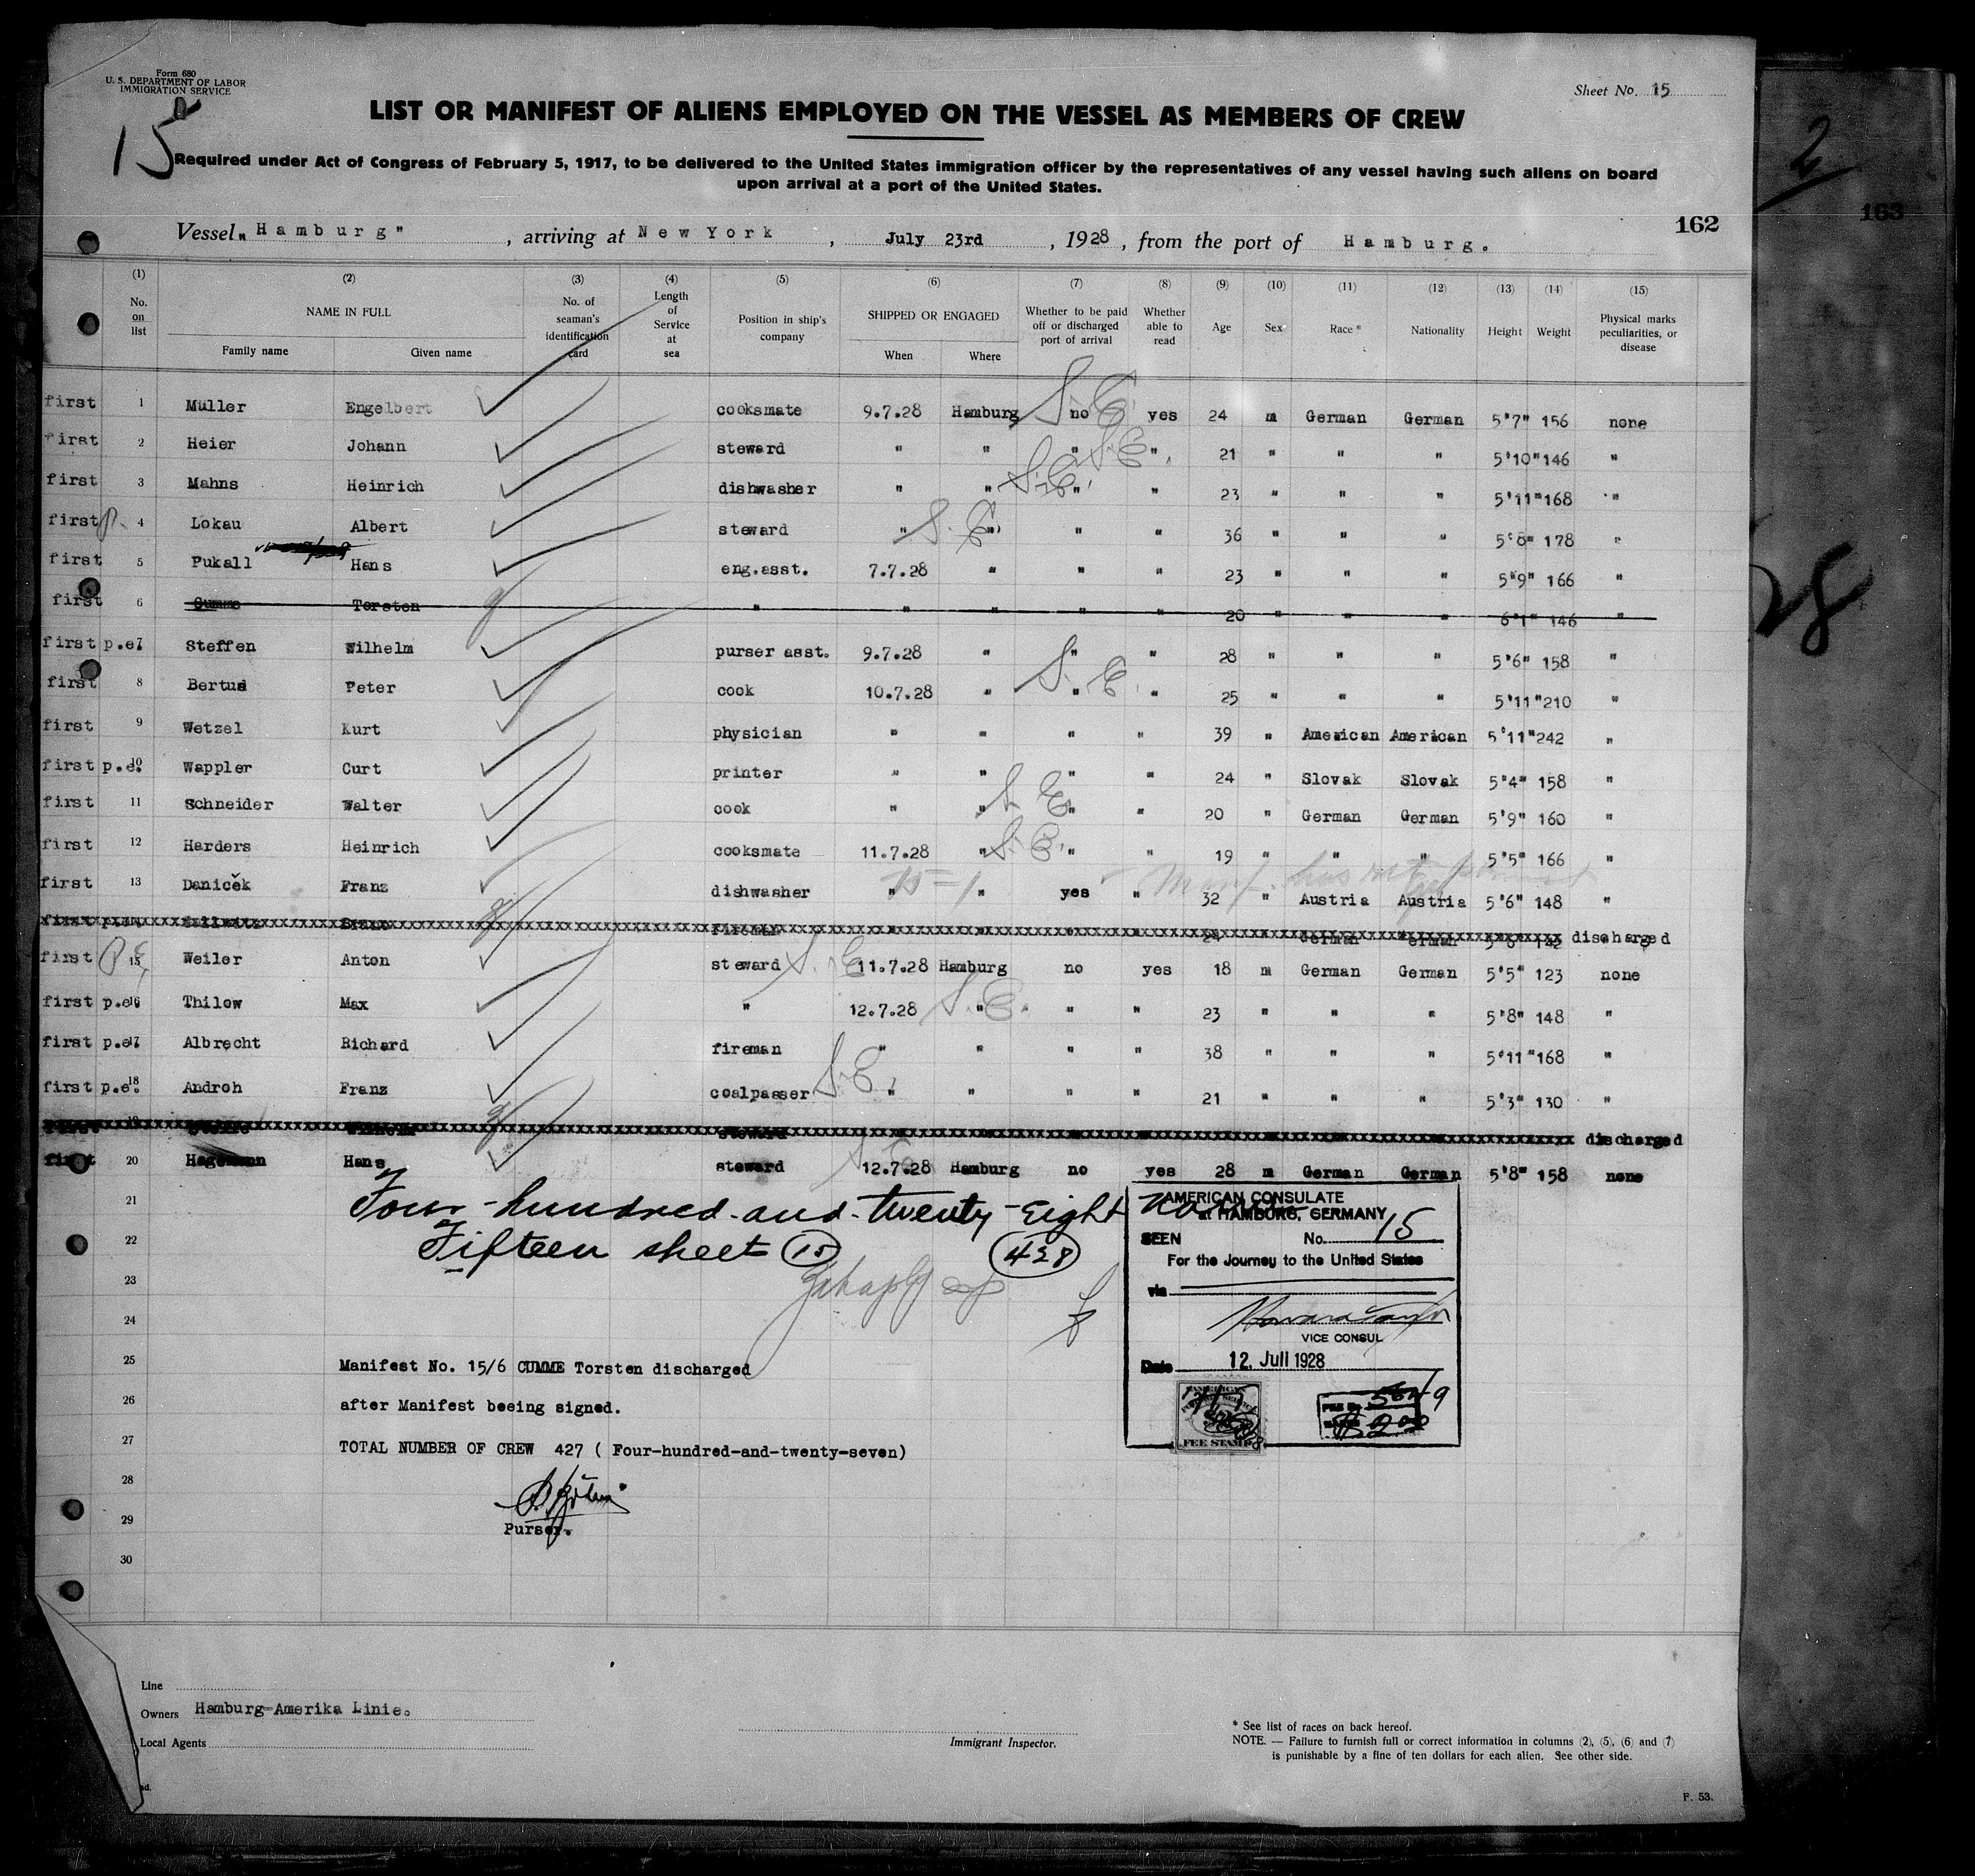 Form 680
U. S. DEPARTMENT OF LABOR
IMMIGRATION SERVICE
Sheet No. 15
15
LIST OR MANIFEST OF ALIENS EMPLOYED ON THE VESSEL AS MEMBERS OF CREW
Required under Act of Congress of February 5, 1917, to be delivered to the United States immigration officer by the representatives of any vessel having such aliens on board
upon arrival at a port of the United States.
162
163
2
28
Vessel „Hamburg" , arriving at New York , July 23rd , 1928 , from the port of Hamburg.
(1) (2) (3) (4) (5) (6) (7) (8) (9) (10) (11) (12) (13) (14) (15)
No. on list NAME IN FULL Family name Given name No. of seaman's identification card Length of Service at sea Position in ship's company SHIPPED OR ENGAGED When Where Whether to be paid off or discharged port of arrival Whether able to read Age Sex Race * Nationality Height Weight Physical marks peculiarities, or disease
first 1 Müller Engelbert cooksmate 9.7.28 Hamburg no yes 24 m German German 5'7" 156 none
first 2 Heier Johann steward " " " " 21 " " " 5'10" 146 "
first 3 Mahns Heinrich dishwasher " " " " 23 " " " 5'11" 168 "
first 4 Lokau Albert steward " " " " 36 " " " 5'8" 178 "
first 5 Pukall Hans eng.asst. 7.7.28 " " " 23 " " " 5'9" 166 "
first 6 Cumme Torsten " " " " " 20 " " " 6'1" 146 "
first p.e. 7 Steffen Wilhelm purser asst. 9.7.28 " " " 28 " " " 5'6" 158 "
first 8 Bertus Peter cook 10.7.28 " " " 25 " " " 5'11" 210 "
first 9 Wetzel Kurt physician " " " " 39 " American American 5'11" 242 "
first p.e. 10 Wappler Curt printer " " " " 24 " Slovak Slovak 5'4" 158 "
first 11 Schneider Walter cook " " " " 20 " German German 5'9" 160 "
first 12 Harders Heinrich cooksmate 11.7.28 " " " 19 " " " 5'5" 166 "
first 13 Daniček Franz dishwasher " " yes " 32 " Austria Austria 5'6" 148 "
first fireman " " " " 24 " German German discharged
first 15 Weiler Anton steward 11.7.28 Hamburg no yes 18 m German German 5'5" 123 none
first p.e. 16 Thilow Max " 12.7.28 " " " 23 " " " 5'8" 148 "
first p.e. 17 Albrecht Richard fireman " " " " 38 " " " 5'11" 168 "
first p.e. 18 Androh Franz coalpasser " " " " 21 " " " 5'3" 130 "
first 19 Wilhelm steward discharged
first 20 Hagemann Hans steward 12.7.28 Hamburg no yes 28 m German German 5'8" 158 none
21
Four-hundred-and-twenty-Eight names
22
Fifteen sheets (15) (428)
23
24
25
Manifest No. 15/6 CUMME Torsten discharged
26
after Manifest beeing signed.
27
TOTAL NUMBER OF CREW 427 ( Four-hundred-and-twenty-seven)
28
29
Purser.
30
AMERICAN CONSULATE
at HAMBURG, GERMANY
SEEN No. 15
For the Journey to the United States
via
VICE CONSUL
Date 12. Juli 1928
FEE STAMP
Line
Owners Hamburg-Amerika Linie.
Local Agents
Immigrant Inspector.
* See list of races on back hereof.
NOTE. — Failure to furnish full or correct information in columns (2), (5), (6) and (7)
is punishable by a fine of ten dollars for each alien. See other side.
F. 53.